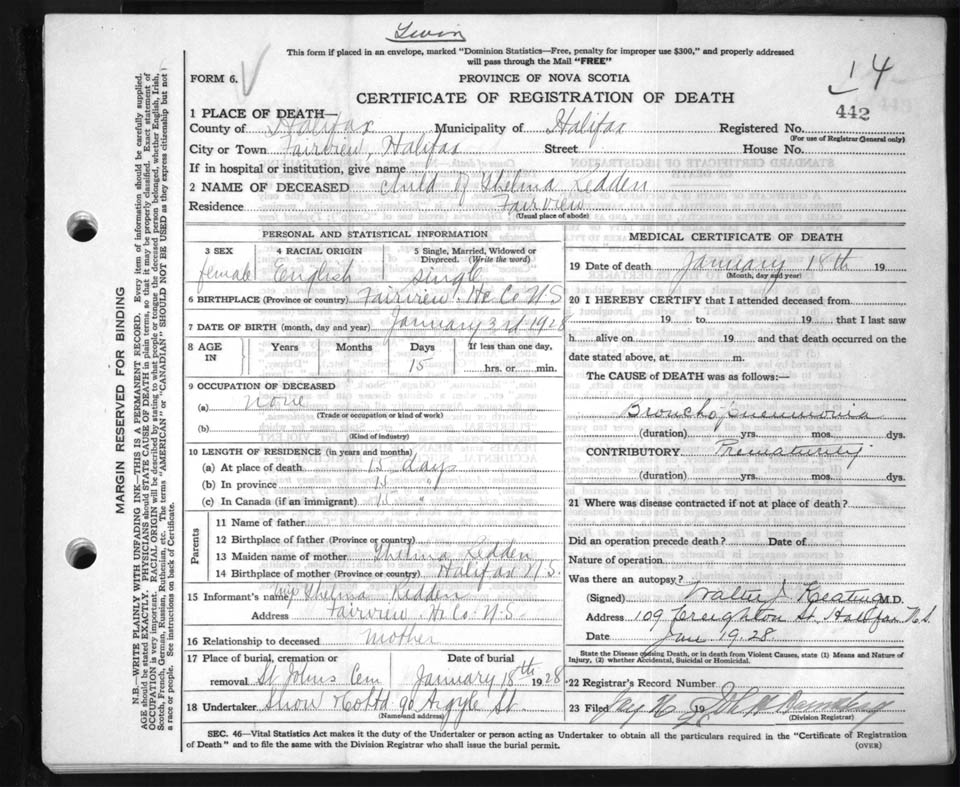 Twin
This form if placed in an envelope, marked "Dominion Statistics—Free, penalty for improper use $300," and properly addressed
will pass through the Mail "FREE"
FORM 6.
PROVINCE OF NOVA SCOTIA
14
CERTIFICATE OF REGISTRATION OF DEATH
442
1 PLACE OF DEATH—
County of Halifax Municipality of Halifax Registered No.
(For use of Registrar General only)
City or Town Fairview, Halifax Street House No.
If in hospital or institution, give name
2 NAME OF DECEASED Child of Thelma Redden
Residence Fairview
(Usual place of abode)
PERSONAL AND STATISTICAL INFORMATION
3 SEX 4 RACIAL ORIGIN 5 Single, Married, Widowed or Divorced. (Write the word)
female English single
6 BIRTHPLACE (Province or country) Fairview Hx. Co N S
7 DATE OF BIRTH (month, day and year) January 3rd 1928
8 AGE IN Years Months Days If less than one day,
15 hrs. or min.
9 OCCUPATION OF DECEASED
(a) none
(Trade or occupation or kind of work)
(b)
(Kind of industry)
10 LENGTH OF RESIDENCE (in years and months)
(a) At place of death 15 days
(b) In province 15 "
(c) In Canada (if an immigrant) 15 "
Parents
11 Name of father
12 Birthplace of father (Province or country)
13 Maiden name of mother Thelma Redden
14 Birthplace of mother (Province or country) Halifax N.S.
15 Informant's name Thelma Redden
Address Fairview Hx Co. N.S
16 Relationship to deceased mother
17 Place of burial, cremation or removal Date of burial
St Johns Cem January 18th 1928
18 Undertaker Snow & Co Ltd 90 Argyle St
(Name and address)
MEDICAL CERTIFICATE OF DEATH
19 Date of death January 18th 19
(Month, day and year)
20 I HEREBY CERTIFY that I attended deceased from
19 to 19 that I last saw
h alive on 19 and that death occurred on the
date stated above, at m.
The CAUSE of DEATH was as follows:
Broncho pneumonia
(duration) yrs. mos. dys.
CONTRIBUTORY Prematurity
(duration) yrs. mos. dys.
21 Where was disease contracted if not at place of death?
Did an operation precede death? Date of
Nature of operation
Was there an autopsy?
(Signed) Walter J Keating M.D.
Address 109 Creighton St Halifax N.S.
Date Jan 19 28
State the Disease causing Death, or in death from Violent Causes, state (1) Means and Nature of
Injury, (2) whether Accidental, Suicidal or Homicidal.
22 Registrar's Record Number
23 Filed 19
(Division Registrar)
SEC. 46—Vital Statistics Act makes it the duty of the Undertaker or person acting as Undertaker to obtain all the particulars required in the "Certificate of Registration
of Death" and to file the same with the Division Registrar who shall issue the burial permit.
(OVER)
MARGIN RESERVED FOR BINDING
N.B.—WRITE PLAINLY WITH UNFADING INK—THIS IS A PERMANENT RECORD. Every item of information should be carefully supplied.
AGE should be stated EXACTLY. PHYSICIANS should STATE CAUSE OF DEATH in plain terms, so that it may be properly classified. Exact statement of
OCCUPATION is very important. RACIAL ORIGIN will be described by stating to what people or tongue the deceased person belonged, whether English, Irish,
Scotch, French, German, Russian, Ruthenian, etc. The terms "AMERICAN" or "CANADIAN" SHOULD NOT BE USED as they express citizenship but not
a race or people. See instructions on back of Certificate.